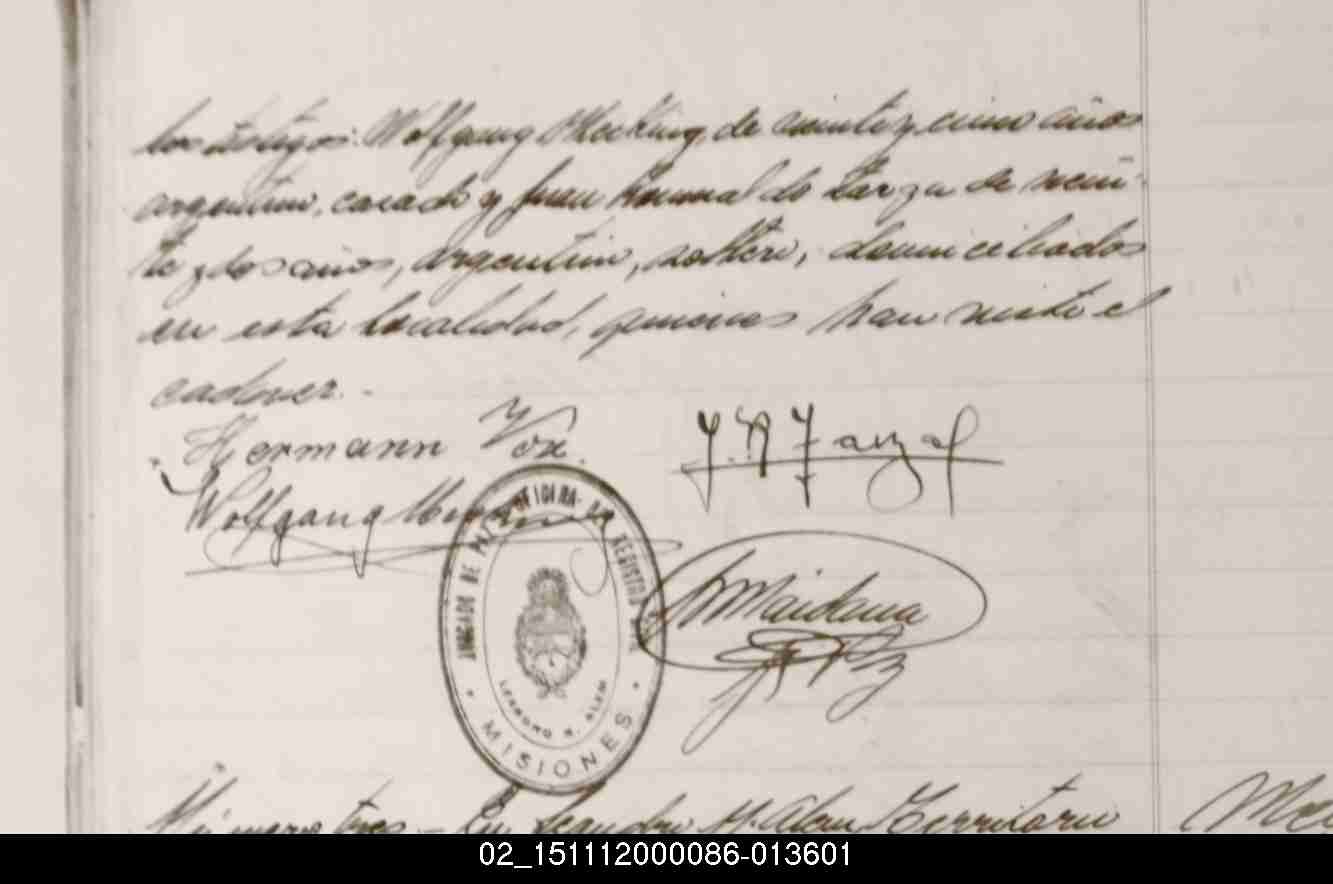 los testigos: Wolfgang de veinticinco años
argentino, casado y Juan Romualdo Zarza de vein-
te y dos años, argentino, soltero, domiciliados
en esta localidad, quienes han visto el
cadaver.-
Hermann Vox.
J. R. Zarza
Wolfgang
JUZGADO DE PAZ Y OFICINA DEL REGISTRO CIVIL
LEANDRO N. ALEM
MISIONES
Maidana
J. P.
Número tres.- En Leandro N. Alem Territorio
02_151112000086-013601